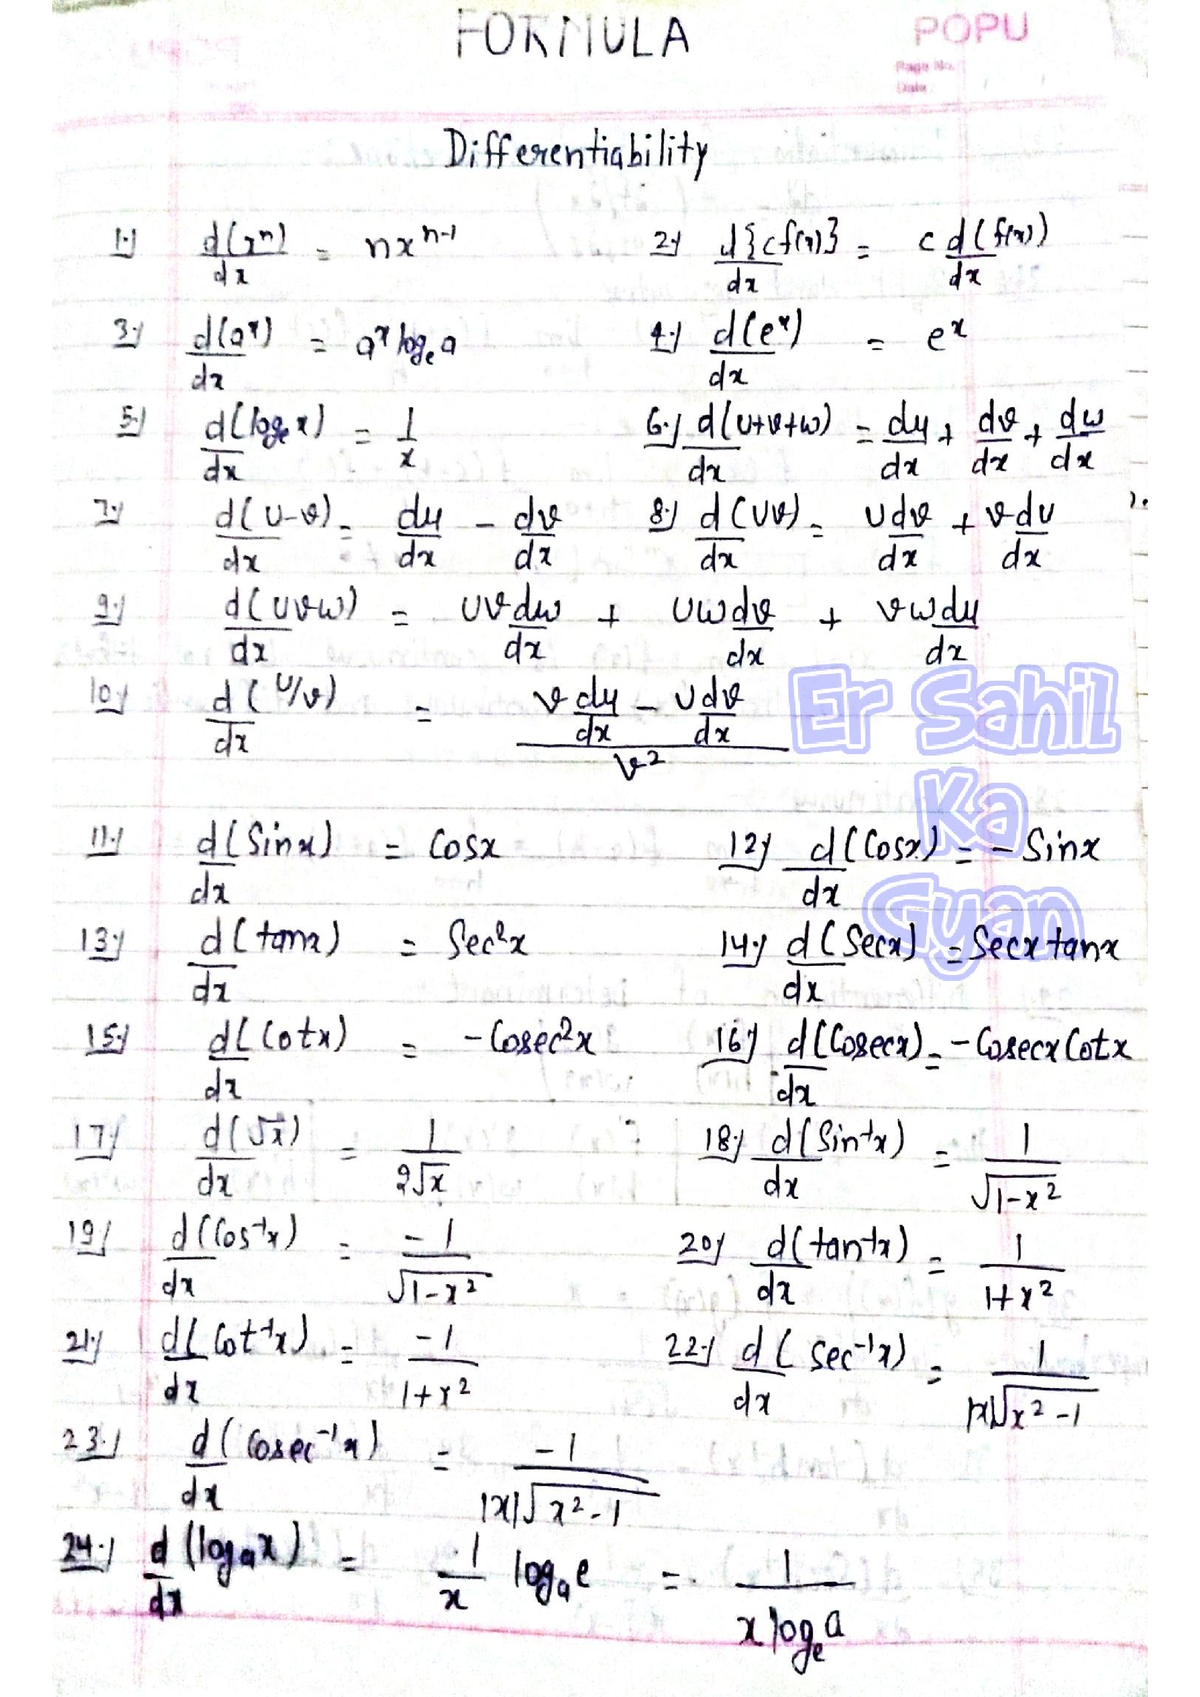 FORMULA
POPU
Page No.
Date
Differentiability
1.) d(xⁿ)/dx = nxⁿ⁻¹ 2.) d{cf(x)}/dx = c d(f(x))/dx
3.) d(aˣ)/dx = aˣ logₑ a 4.) d(eˣ)/dx = eˣ
5.) d(logₑ x)/dx = 1/x 6.) d(u+v+w)/dx = du/dx + dv/dx + dw/dx
7.) d(u-v)/dx = du/dx - dv/dx 8.) d(uv)/dx = u dv/dx + v du/dx
9.) d(uvw)/dx = uv dw/dx + uw dv/dx + vw du/dx
10.) d(u/v)/dx = (v du/dx - u dv/dx)/v²
Er Sahil
Ka
Gyan
11.) d(Sinx)/dx = Cosx 12.) d(Cosx)/dx = -Sinx
13.) d(tanx)/dx = Sec²x 14.) d(Secx)/dx = Secx tanx
15.) d(Cotx)/dx = -Cosec²x 16.) d(Cosecx)/dx = -Cosecx Cotx
17.) d(√x)/dx = 1/(2√x) 18.) d(Sin⁻¹x)/dx = 1/√(1-x²)
19.) d(Cos⁻¹x)/dx = -1/√(1-x²) 20.) d(tan⁻¹x)/dx = 1/(1+x²)
21.) d(Cot⁻¹x)/dx = -1/(1+x²) 22.) d(sec⁻¹x)/dx = 1/(|x|√(x²-1))
23.) d(Cosec⁻¹x)/dx = -1/(|x|√(x²-1))
24.) d/dx (logₐx) = 1/x logₐe = 1/(x logₑ a)